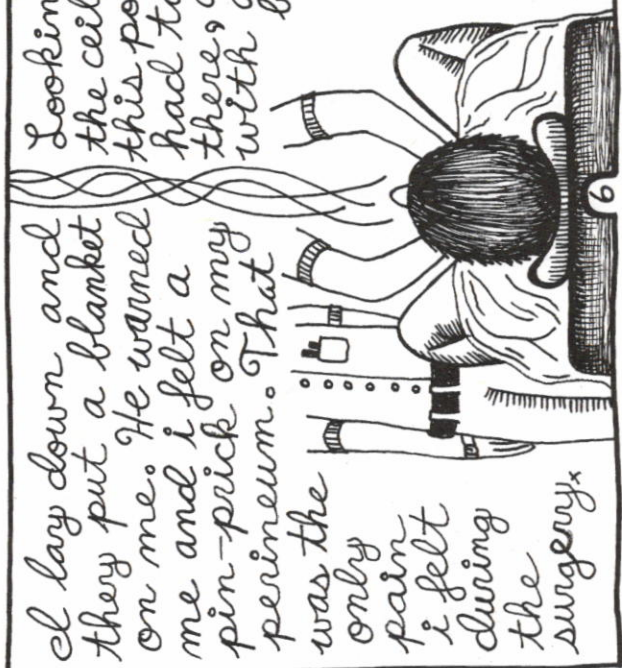 I lay down and
they put a blanket
on me. He warned
me and i felt a
pin-prick on my
perineum. That
was the
only
pain
i felt
during
the
surgery.
Lookin
the ceil
this po
had to
there,
with